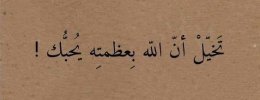 تَخيّلْ أنّ الله بِعظمتِه يُحبُّك !